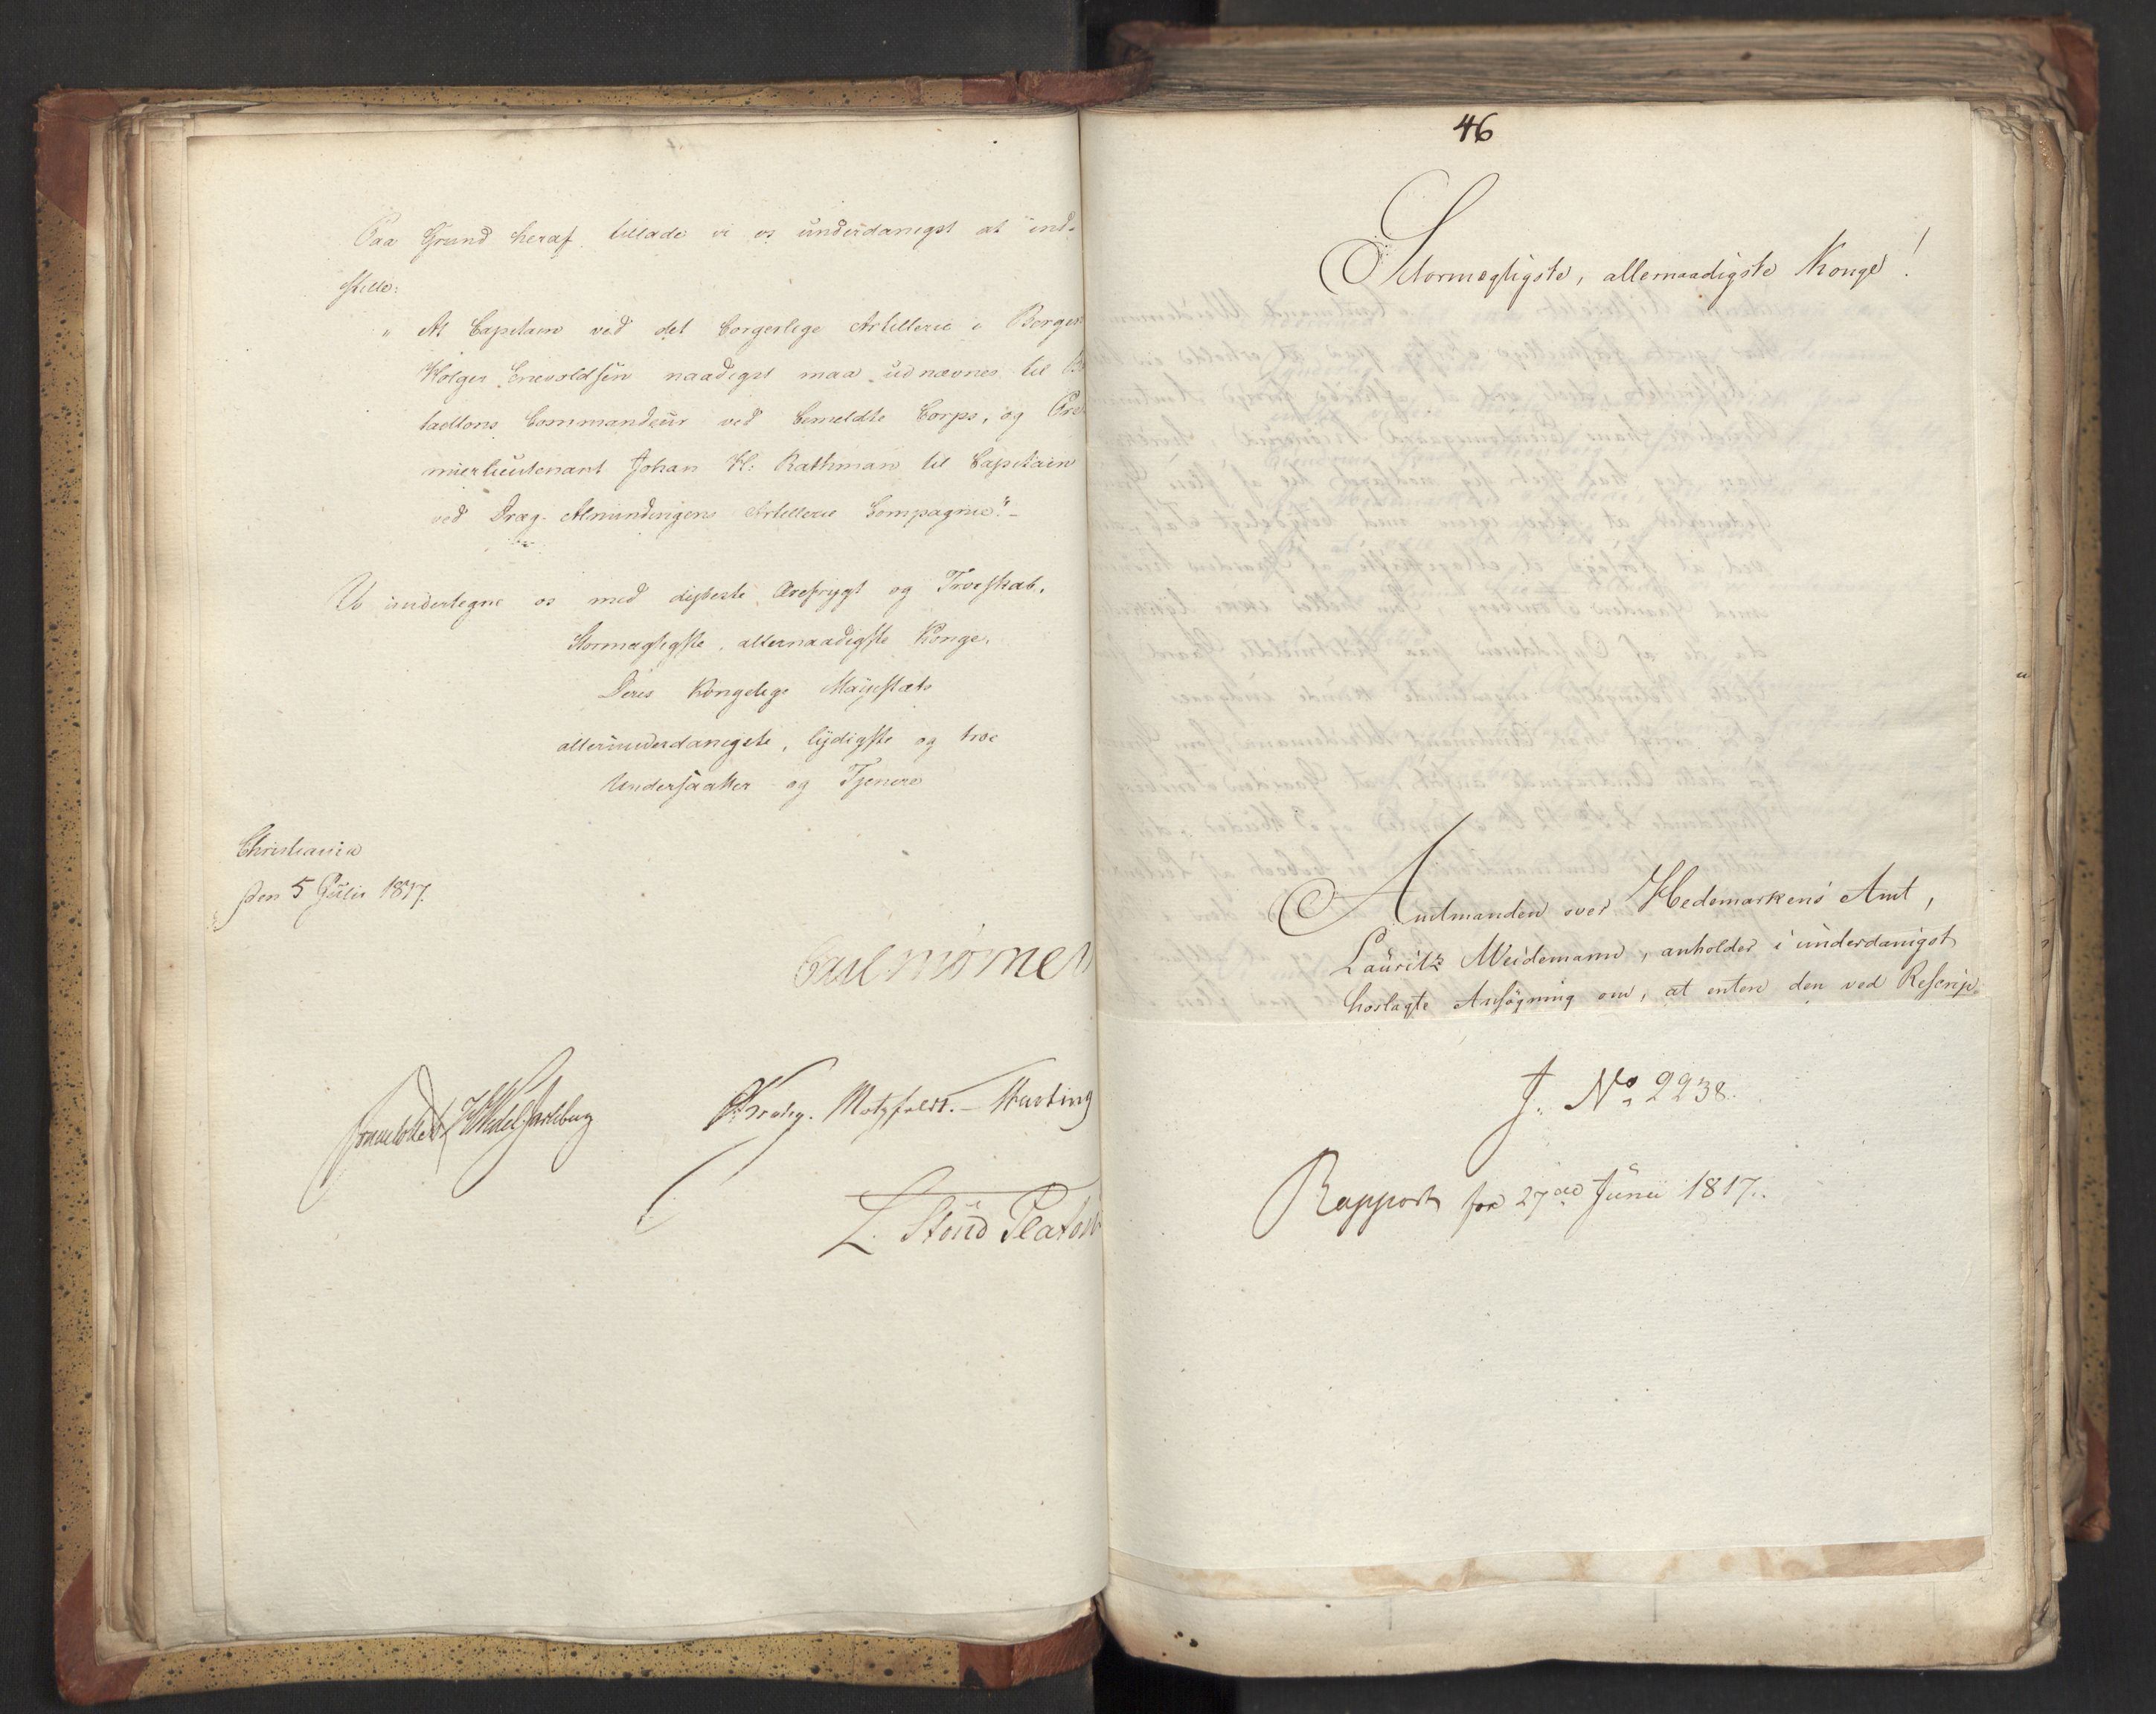 Paa Grund heraf tillade vi os underdanigst at ind-
stille:
" At Capitain ved det borgerlige Artillerie i Bergen
Holger Enevoldsen naadigst maa udnævnes til Ba
taillons Commandeur ved bemeldte Corps, og Pre
mierlieutenant Johan H: Rathman til Capitain
ved Dræg- Almindingens Artillerie Compagnie."-
Vi undertegne os med dybeste Ærefrygt og Troeskab.
Stormægtigste, allernaadigste Konge,
Deres Kongelige Majestæts
allerunderdanigste, lydigste og troe
Undersaatter og Tjenere
Christiania
den 5 Julii 1817.
Carl Mörner
Sommerhielm HWedel Jarlsberg Krohg. Motzfeldt. Hasting
L. Stoud Platou
46
Stormægtigste, allernaadigste Konge!
Amtmanden over Hedemarkens Amt,
Lauritz Weidemann, anholder i underdanigst
hoslagte Ansøgning om, at enten den ved Rescrip
J. No 2238.
Rapport for 27de Junii 1817.